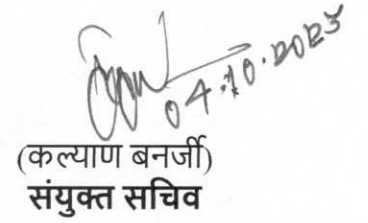 04.10.2023
(कल्याण बनर्जी)
संयुक्त सचिव